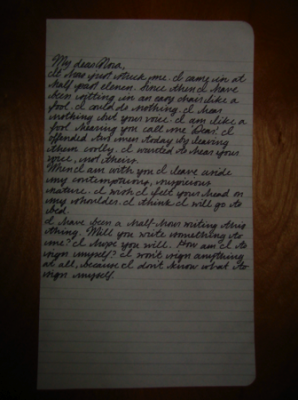 My dear Nora,
It has just struck me. I came in at
half past eleven. Since then I have
been sitting in an easy chair like a
fool. I could do nothing. I hear
nothing but your voice. I am like a
fool hearing you call me 'Dear.' I
offended two men today by leaving
them coolly. I wanted to hear your
voice, not theirs.
When I am with you I leave aside
my contemptuous, suspicious
nature. I wish I felt your head on
my shoulder. I think I will go to
bed.
I have been a half-hour writing this
thing. Will you write something to
me? I hope you will. How am I to
sign myself? I won't sign anything
at all, because I don't know what to
sign myself.